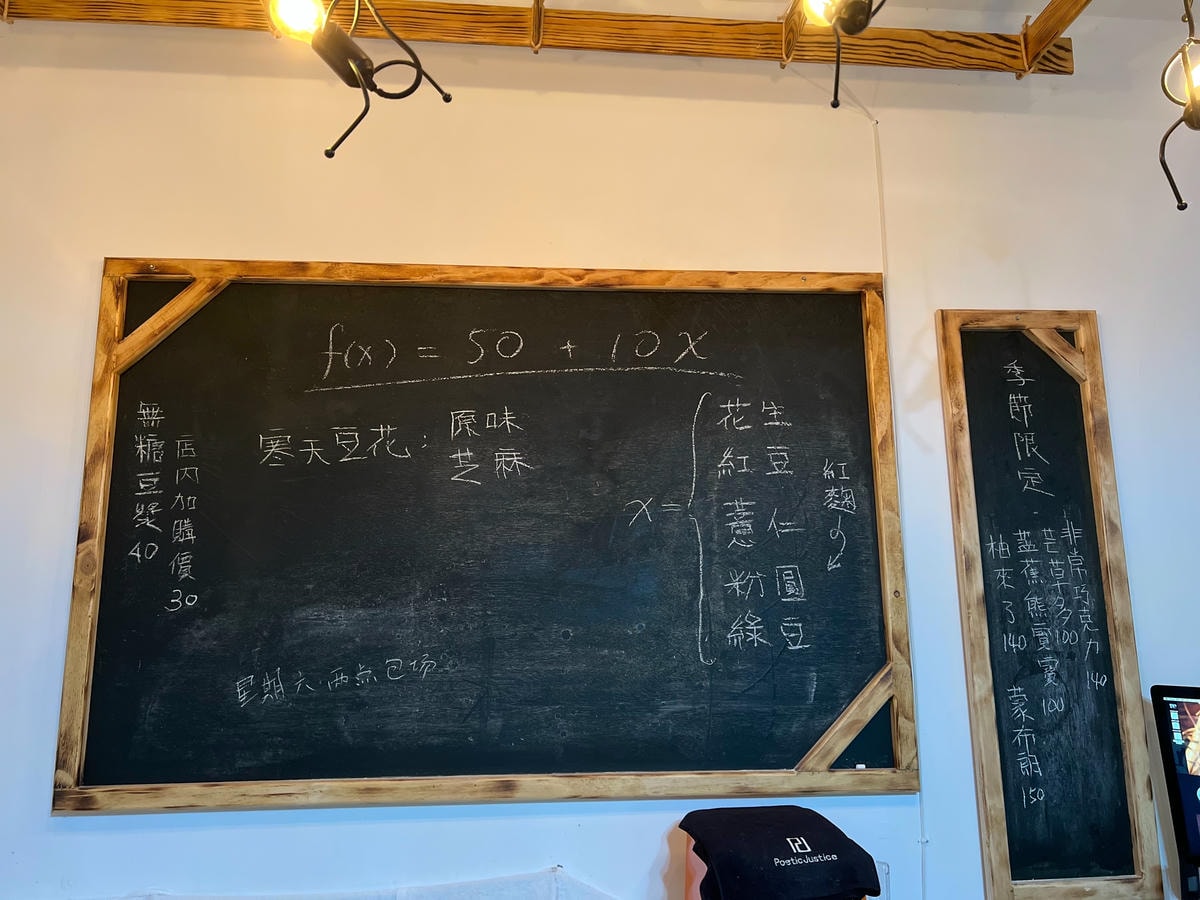 f(x) = 50 + 10x
無糖豆漿 40
店內加購價 30
寒天豆花:
原味
芝麻
x =
花生
紅豆
薏仁
粉圓
綠豆
紅麴の
星期六 两点包场
季節限定
非常巧克力 140
芒草多多 100
蕉熊寶寶 100
蒙布朗 150
柚來了 140
PoeticJustice